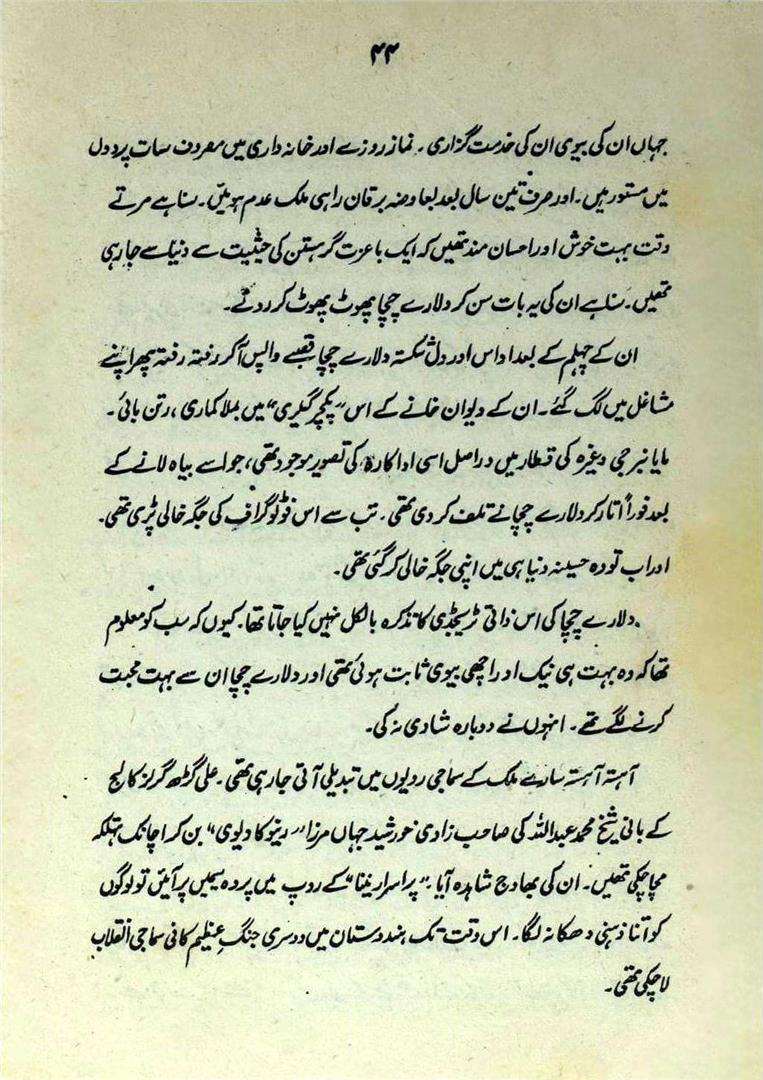 ۴۴
جہاں ان کی بیوی ان کی خدمت گزاری ۔ نماز روزے اور خانہ داری میں مصروف سات پردوں
میں مستور رہیں ۔ اور صرف تین سال بعد بعارضہ یرقان راہی ملک عدم ہوئیں ۔ سنا ہے مرتے
وقت بہت خوش اور احسان مند تھیں کہ ایک باعزت گرہستن کی حیثیت سے دنیا سے جا رہی
تھیں ۔ سنا ہے ان کی یہ بات سن کر دلارے چچا پھوٹ پھوٹ کر روئے ۔
ان کے چہلم کے بعد اداس اور دل شکستہ دلارے چچا قصبے واپس آ کر رفتہ رفتہ پھر اپنے
مشاغل میں لگ گئے ۔ ان کے دیوان خانے کے اس "پکچر گیلری" میں بملا کماری ، رتن بائی ۔
مایا بنرجی وغیرہ کی قطار میں دراصل اسی اداکارہ کی تصویر موجود تھی ، جو اسے بیاہ لانے کے
بعد فوراً اتار کر دلارے چچا نے تلف کر دی تھی ۔ تب سے اس فوٹوگراف کی جگہ خالی پڑی تھی ۔
اور اب تو وہ حسینہ دنیا ہی میں اپنی جگہ خالی کر گئی تھی ۔
دلارے چچا کی اس ذاتی ٹریجڈی کا تذکرہ بالکل نہیں کیا جاتا تھا ۔ کیوں کہ سب کو معلوم
تھا کہ وہ بہت ہی نیک اور اچھی بیوی ثابت ہوئی تھی اور دلارے چچا ان سے بہت محبت
کرنے لگے تھے ۔ انہوں نے دوبارہ شادی نہ کی ۔
آہستہ آہستہ سارے ملک کے سماجی رویوں میں تبدیلی آتی جا رہی تھی ۔ علی گڑھ گرلز کالج
کے بانی شیخ محمد عبداللہ کی صاحب زادی خورشید جہاں مرزا "رینوکا دیوی" بن کر اچانک تہلکہ
مچا چکی تھیں ۔ ان کی بھاوج شاہدہ آپا ۔ "پراسرار نینا" کے روپ میں پردہ سیمیں پر آئیں تو لوگوں
کو اتنا ذہنی دھکا نہ لگا ۔ اس وقت تک ہندوستان میں دوسری جنگِ عظیم کافی سماجی انقلاب
لا چکی تھی ۔